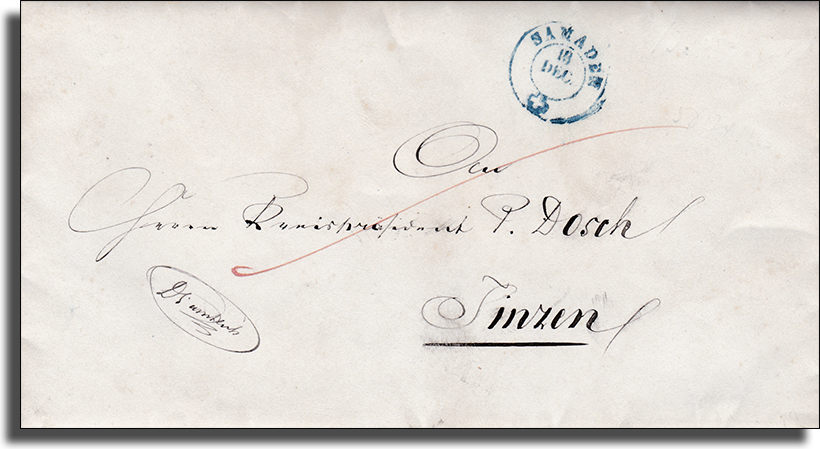 SAMADEN
18
DEC.
An
Herrn Kreispräsident P. Dosch
Tinzen